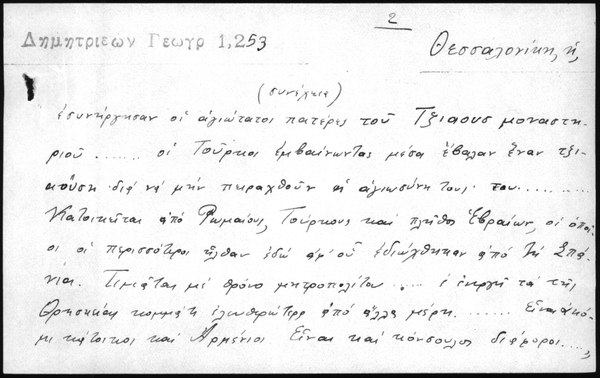 2
Δημητριεων Γεωγρ 1,253
Θεσσαλονίκη, ἡ
(συνέχεια)
ἐσυνήργησαν οἱ ἁγιώτατοι πατέρες τοῦ Τζιαους μοναστη-
ριοῦ ...... οἱ Τοῦρκοι ἐμβαίνωντας μέσα ἔβαλαν ἕναν τζι-
διὰ νὰ μὴν πειραχθοῦν ἡ ἁγιωσύνη τους. του.........
Κατοικεῖται ἀπὸ Ρωμαίους, Τούρκους καὶ πλῆθος Ἑβραίων, οἱ ὁποῖ-
οι οἱ περισσότεροι ἦλθαν ἐδῶ ἀφ' οὗ ἐδιώχθηκαν ἀπὸ τὴ Σπα-
νία. Τιμᾶται μὲ θρόνο μητροπολίτου ..... ἐνεργῆ τὰ τῆς
Θρησκείας κομμάτι ἐλευθερώτερα ἀπὸ ἄλλα μέρη. ...... Εἶναι ἀκό-
μι κάτοικοι καὶ Ἀρμένιοι Εἶναι καὶ κόνσουλοι διάφοροι....,